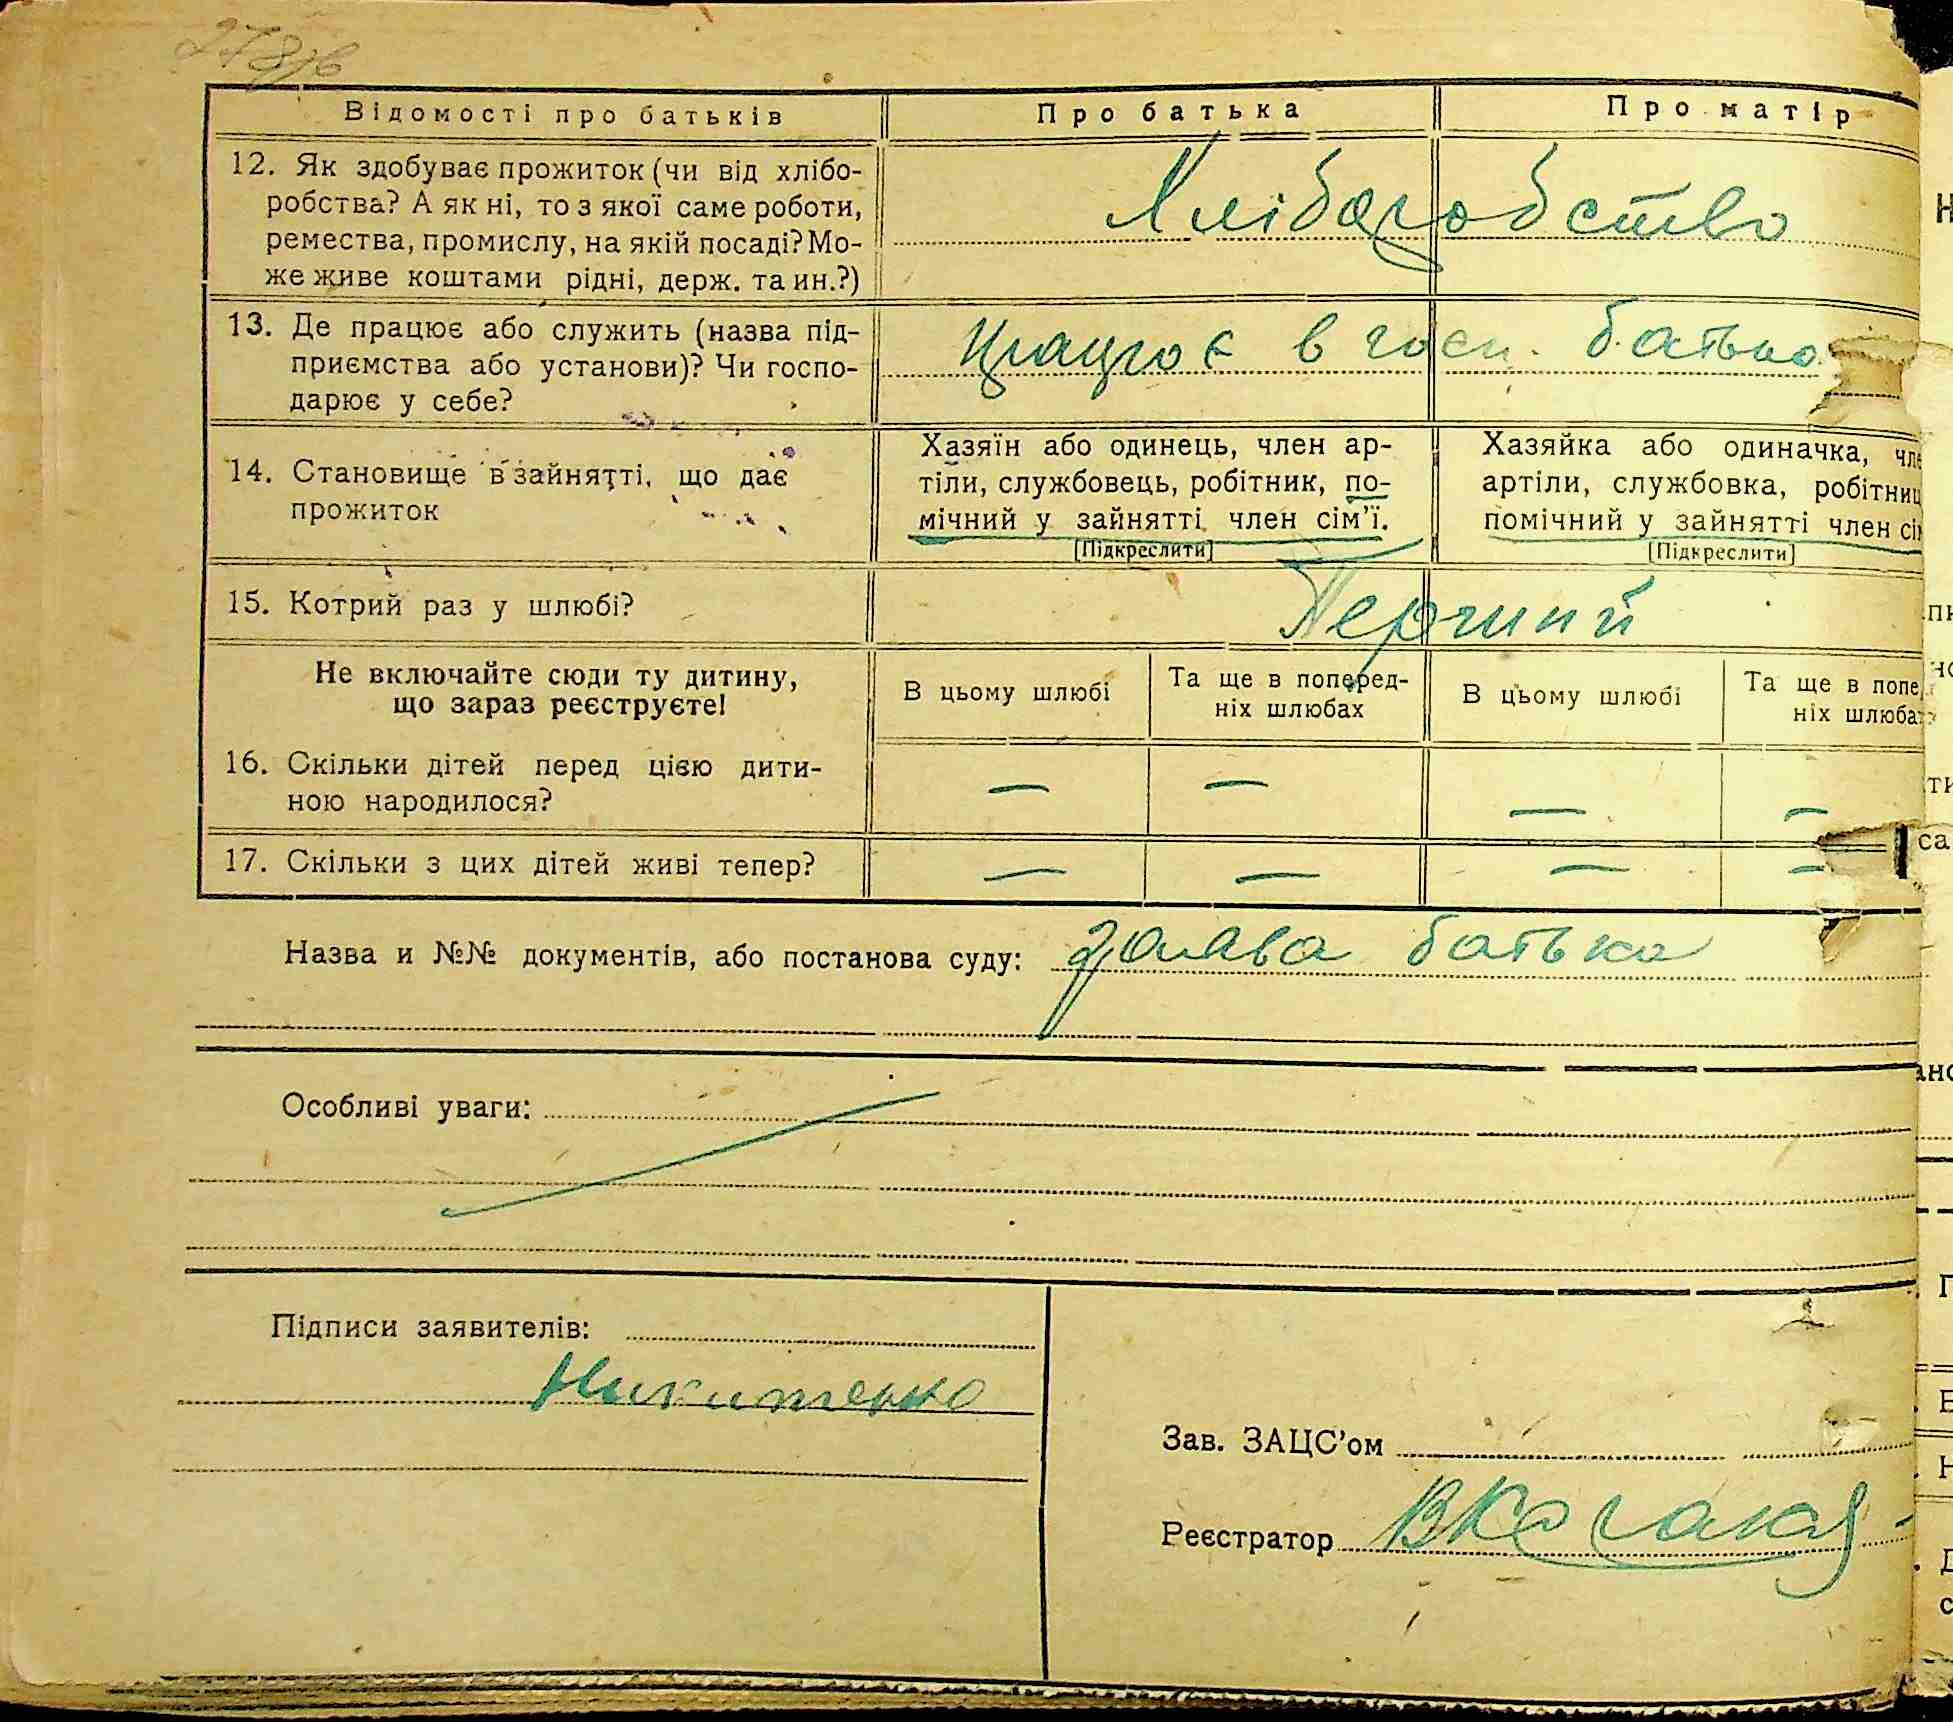 278зв
Відомості про батьків
Про батька
Про матір
12. Як здобуває прожиток (чи від хлібо-
робства? А як ні, то з якої саме роботи,
ремества, промислу, на якій посаді? Мо-
же живе коштами рідні, держ. та ин.?)
Хліборобство
13. Де працює або служить (назва під-
приємства або установи)? Чи госпо-
дарює у себе?
Працює в госп. батька
14. Становище в зайнятті, що дає
прожиток
Хазяїн або одинець, член ар-
тіли, службовець, робітник, по-
мічний у зайнятті член сім'ї.
[Підкреслити]
Хазяйка або одиначка, чле
артіли, службовка, робітниц
помічний у зайнятті член сім
[Підкреслити]
15. Котрий раз у шлюбі?
Перший
Не включайте сюди ту дитину,
що зараз реєструєте!
В цьому шлюбі
Та ще в поперед-
ніх шлюбах
В цьому шлюбі
Та ще в попе
ніх шлюба
16. Скільки дітей перед цією дити-
ною народилося?
— — — —
17. Скільки з цих дітей живі тепер?
— — — —
Назва и №№ документів, або постанова суду: заява батька
Особливі уваги:
Підписи заявителів:
Никитенко
Зав. ЗАЦС'ом
Реєстратор